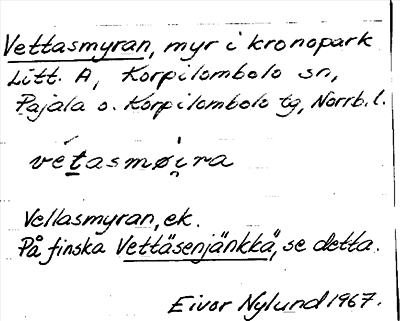 Vettasmyran, myr i kronopark
Litt. A, Korpilombolo sn,
Pajala o. Korpilombolo tg, Norrb. l.
vét̲asmøi̯ra
Vettasmyran, ek.
På finska Vettäsenjänkkä, se detta.
Eivor Nylund 1967.